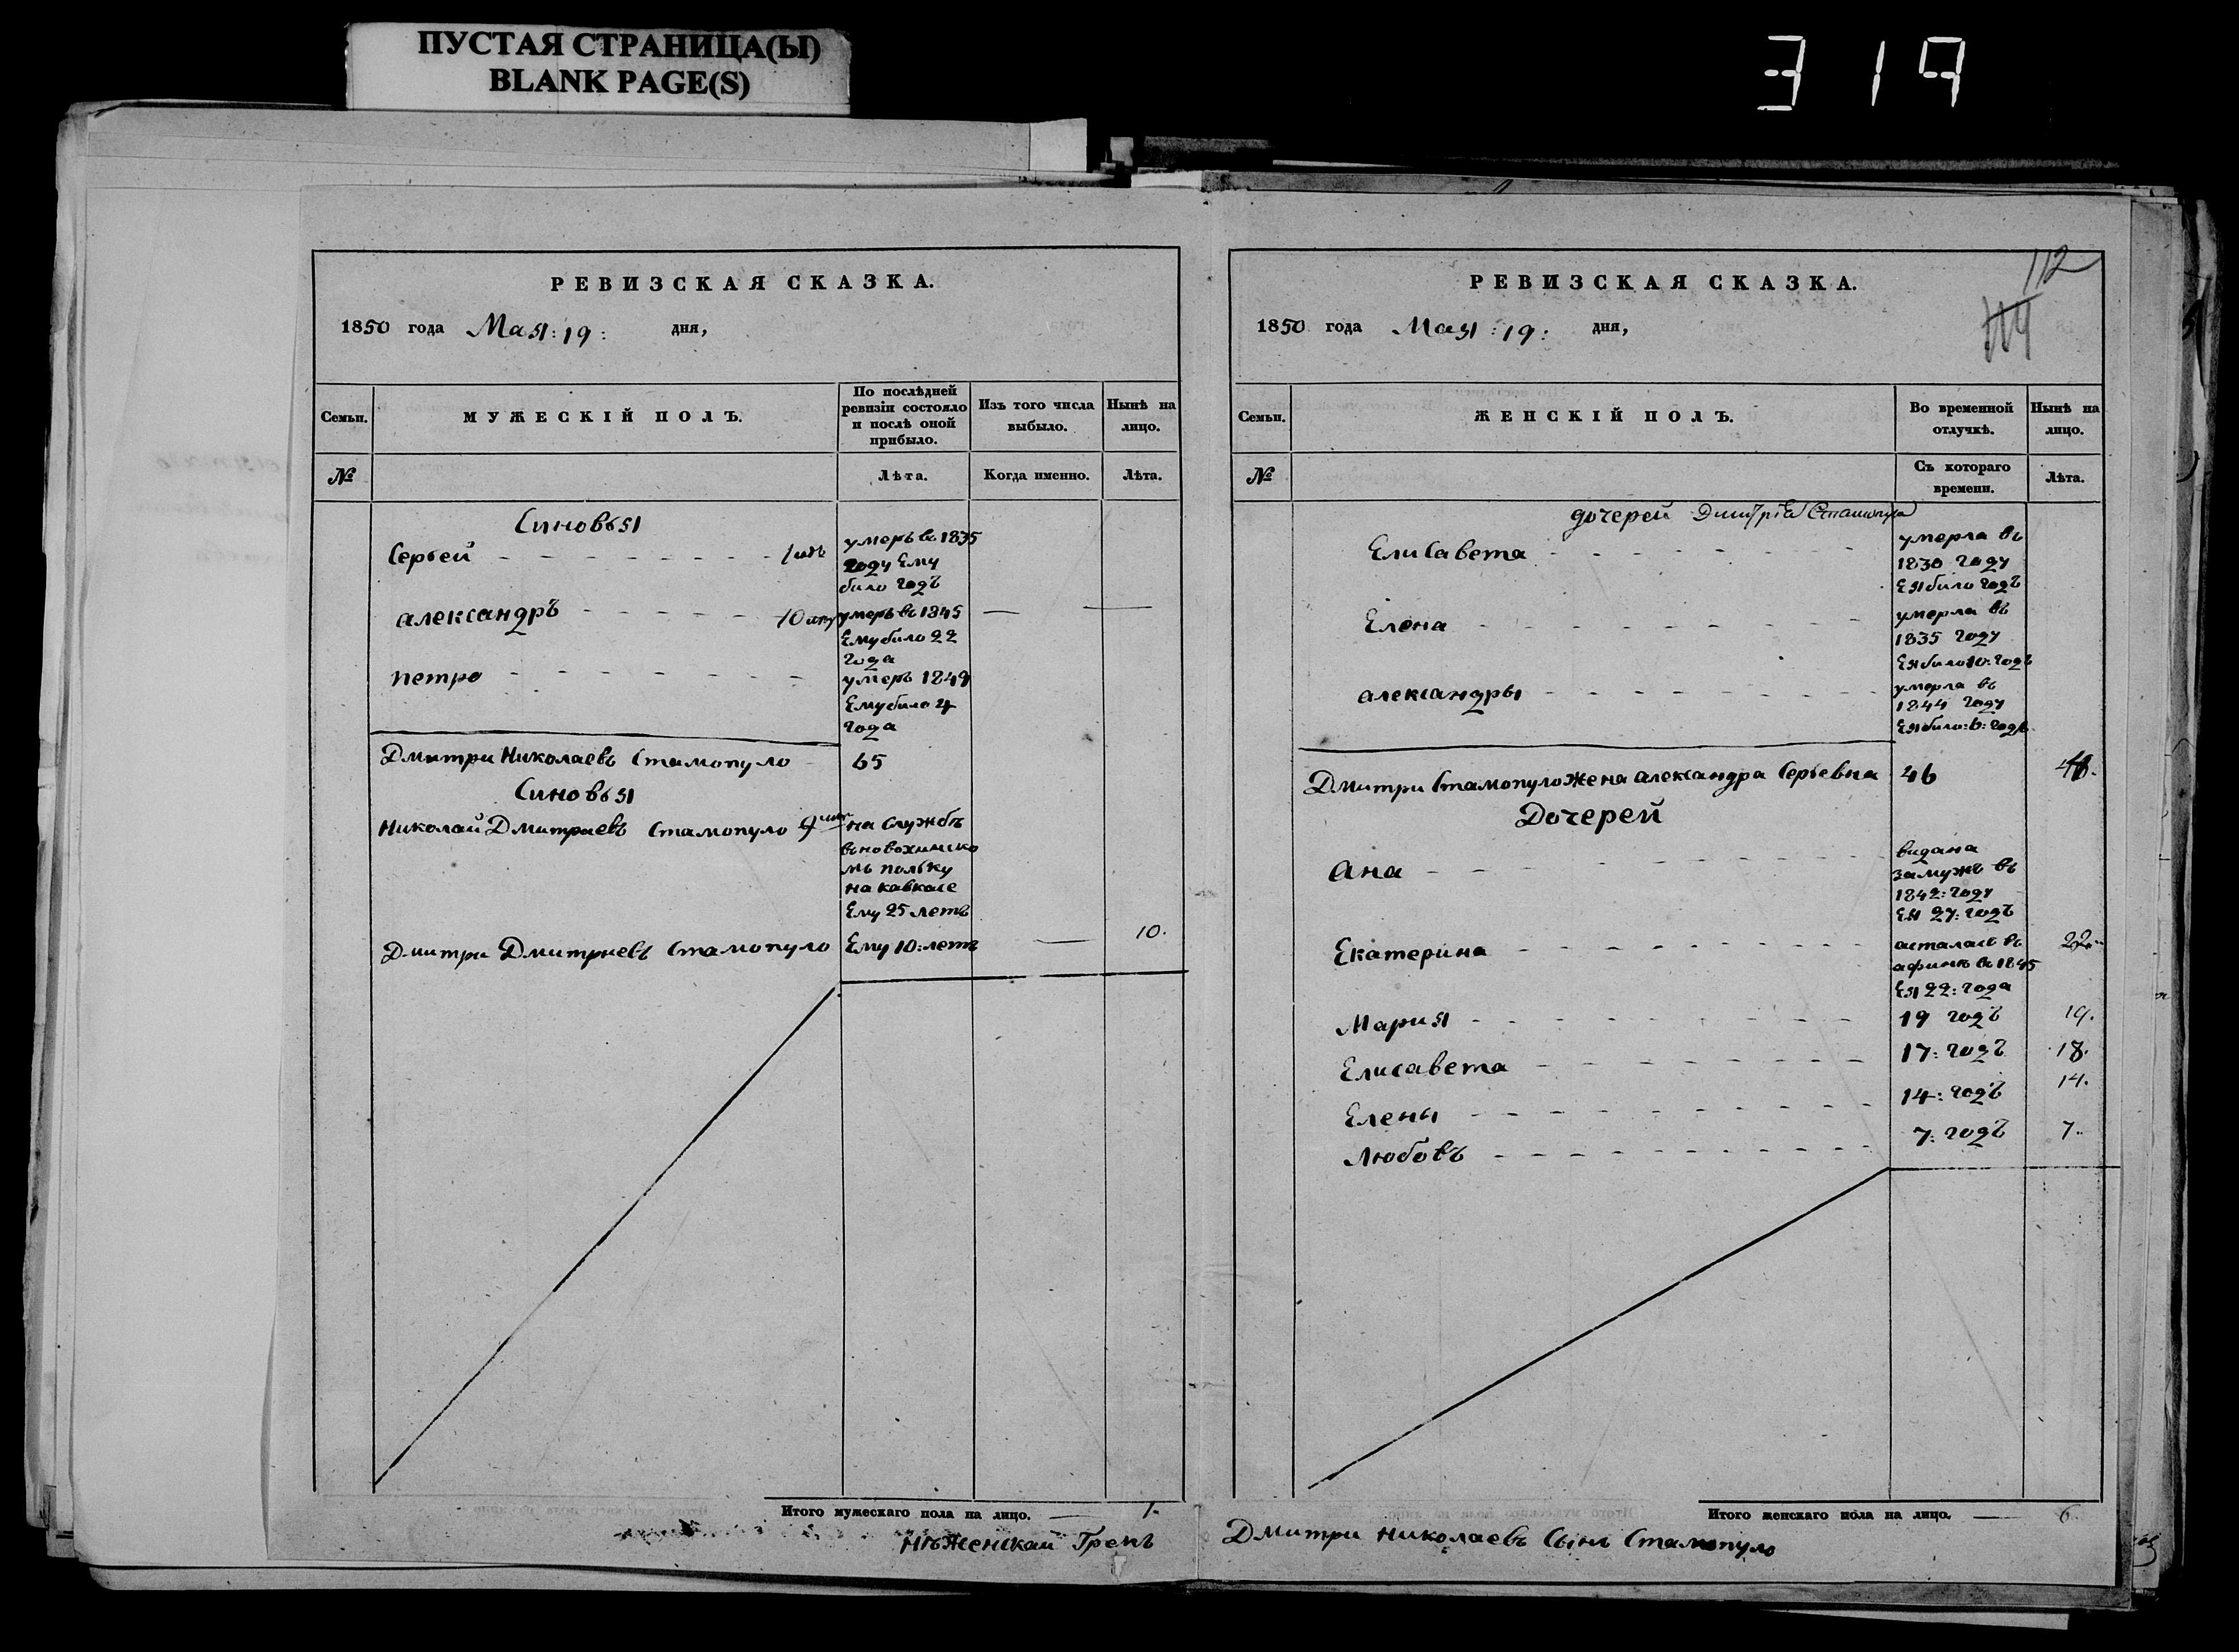 ПУСТАЯ СТРАНИЦА(Ы)
BLANK PAGE(S)
319
РЕВИЗСКАЯ СКАЗКА.
1850 года Мая: 19: дня,
Семьи.
МУЖЕСКІЙ ПОЛЪ.
По послѣдней ревизіи состояло и послѣ оной прибыло.
Изъ того числа выбыло.
Нынѣ на лицо.
№
Лѣта.
Когда именно.
Лѣта.
Синовья
Сергей
умеръ въ 1835
году Ему
било годъ
александръ 10
умеръ въ 1845
Ему било 22
года
петро
умеръ 1849
Ему било 4
года
Дмитри Николаевъ Стамопуло 65
Синовья
Николай Дмитриевъ Стамопуло 9
на Службѣ
въ новохимско
мъ польку
на кавказе
Ему 25 летъ
Дмитри Дмитриевъ Стамопуло Ему 10: летъ 10.
Итого мужескаго пола на лицо. 1.
Нѣженскаи Грекъ
РЕВИЗСКАЯ СКАЗКА.
112
1850 года Мая: 19: дня,
Семьи.
ЖЕНСКІЙ ПОЛЪ.
Во временной отлучкѣ.
Нынѣ на лицо.
№
Съ котораго времени.
Лѣта.
дочерей Дмитрія Стамопула
Елисавета
умерла въ
1830 году
Ея било годъ
Елена
умерла въ
1835 году
Ея било 10: годъ
александры
умерла въ
1844 году
Ея било: 6: годъ
Дмитри Стамопуло жена александра Сергевна 46
Дочерей
Ана
видана
замужъ въ
1842: году
Ея 27: годъ
Екатерина
асталась въ
афинѣ въ 1845
Ея 22: года
22.
Мария 19 годъ 19.
Елисавета 17: годъ 18.
Елены 14: годъ 14.
Любовъ 7: годъ 7.
Итого женскаго пола на лицо. 6
Дмитри Николаевъ Сынъ Стамопуло